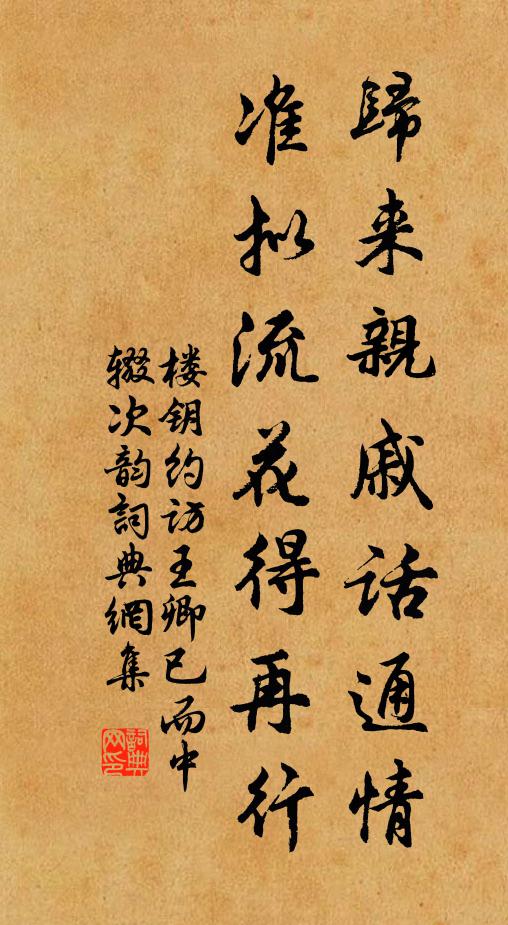 歸来親戚話通情
准拟流花得再行
楼钥约访王卿已而中
辍次韵詞典網集
詞典网印